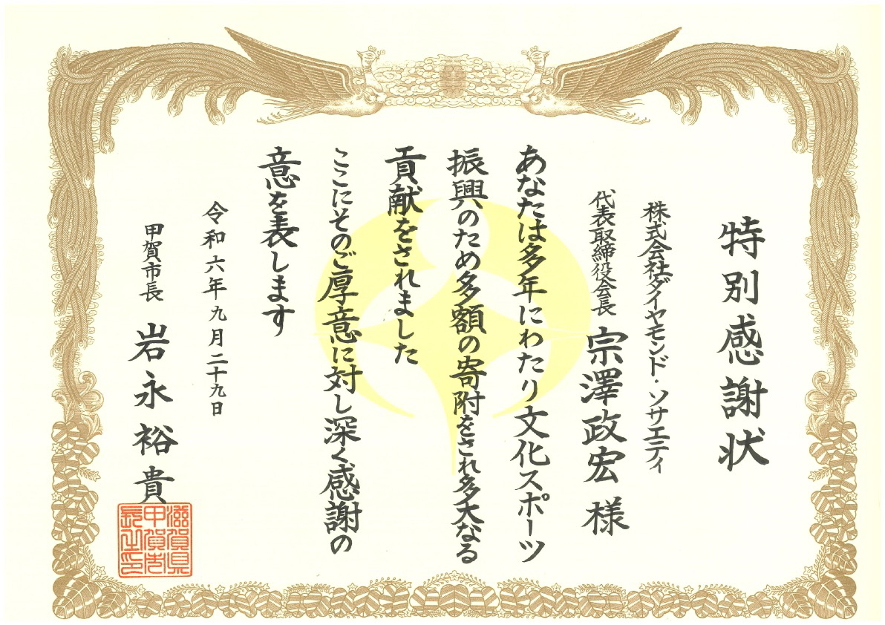 特別感謝状
株式会社ダイヤモンド・ソサエティ
代表取締役会長 宗澤政宏 様
あなたは多年にわたり文化スポーツ
振興のため多額の寄附をされ多大なる
貢献をされました
ここにそのご厚意に対し深く感謝の
意を表します
令和六年九月二十九日
甲賀市長 岩永裕貴
滋賀県
甲賀市
長之印